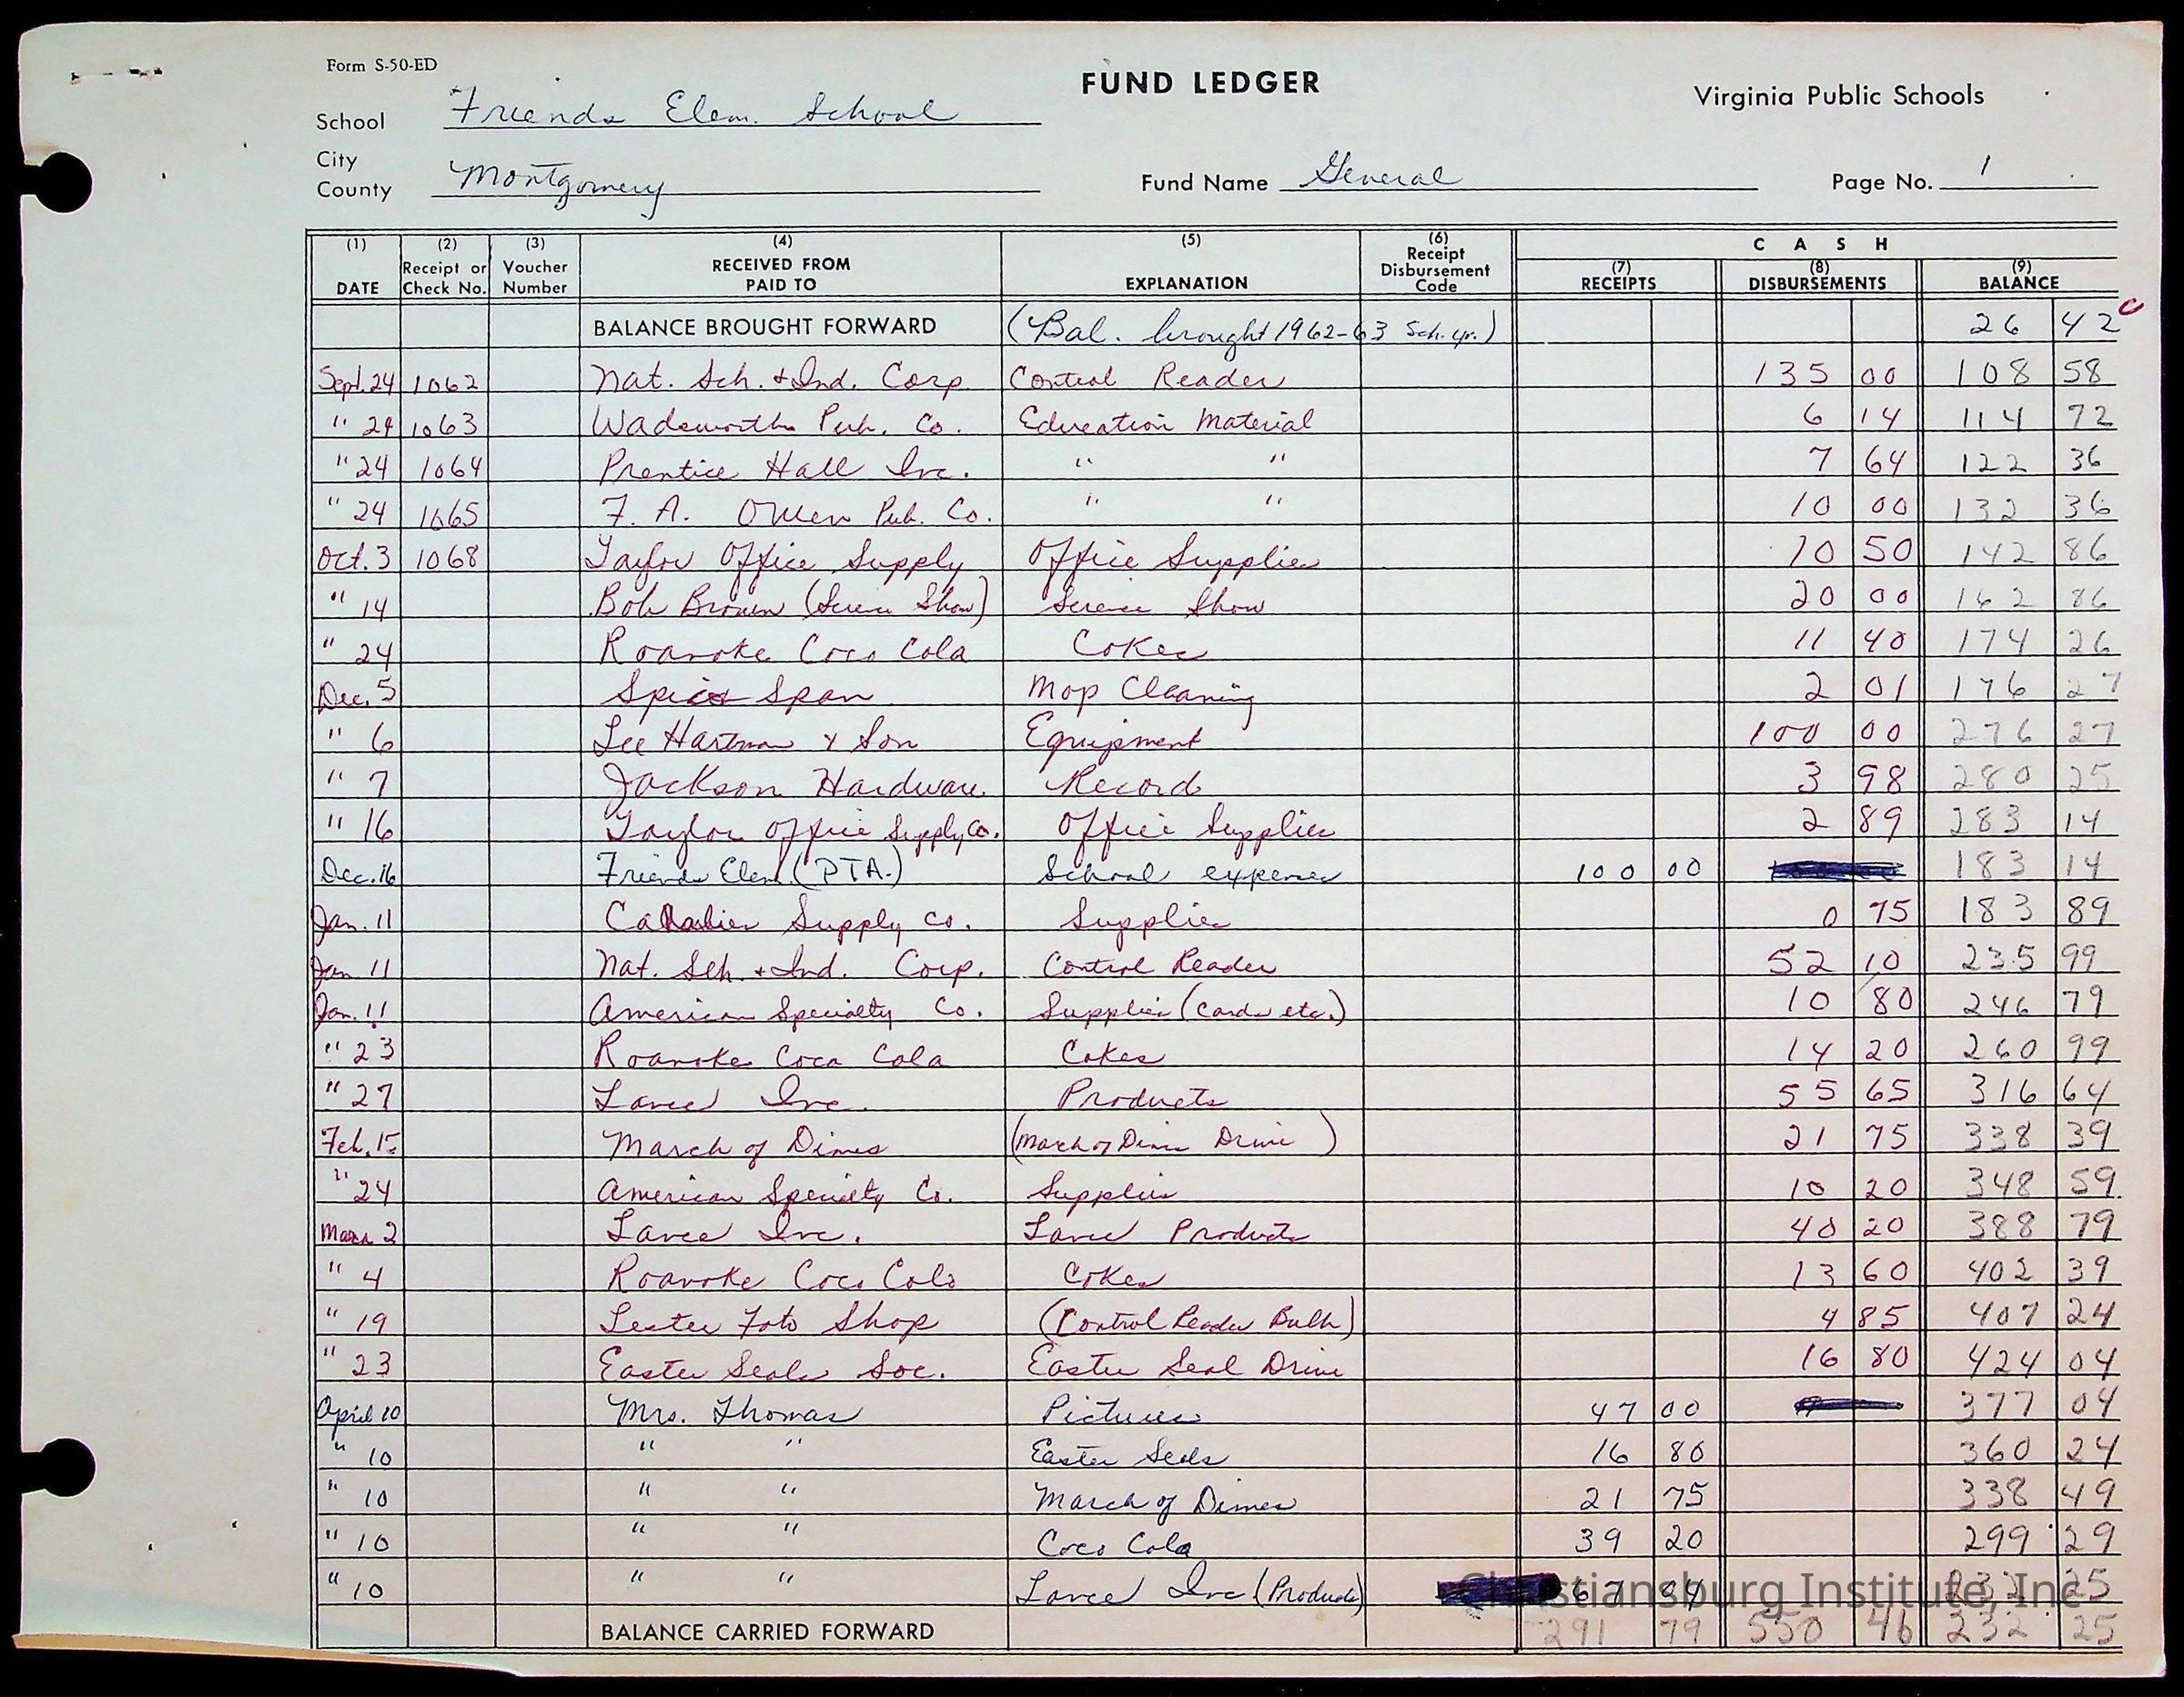 Form S-50-ED
FUND LEDGER
Virginia Public Schools
School Friends Elem. School
City
County Montgomery
Fund Name General
Page No. 1
(1) (2) (3) (4) (5) (6) C A S H
DATE Receipt or Check No. Voucher Number RECEIVED FROM PAID TO EXPLANATION Receipt Disbursement Code (7) RECEIPTS (8) DISBURSEMENTS (9) BALANCE
BALANCE BROUGHT FORWARD (Bal. brought 1962-63 Sch. yr.) 26 42
Sept. 24 1062 Nat. Sch. + Ind. Corp. Control Reader 135 00 108 58
" 24 1063 Wadsworth Pub. Co. Education Material 6 14 114 72
" 24 1064 Prentice Hall Inc. " " 7 64 122 36
" 24 1065 F. A. Owen Pub. Co. " " 10 00 132 36
Oct. 3 1068 Taylor Office Supply Office Supplies 10 50 142 86
" 14 Bob Brown (Science Show) Science Show 20 00 162 86
" 24 Roanoke Coco Cola Cokes 11 40 174 26
Dec. 5 Spic Span Mop Cleaning 2 01 176 27
" 6 Lee Hartman & Son Equipment 100 00 276 27
" 7 Jackson Hardware Record 3 98 280 25
" 16 Taylor Office Supply Co. Office Supplies 2 89 283 14
Dec. 16 Friends Elem. (PTA.) School expenses 100 00 183 14
Jan. 11 Supply Co. Supplies 0 75 183 89
Jan. 11 Nat. Sch. + Ind. Corp. Control Reader 52 10 235 99
Jan. 11 American Specialty Co. Supplies (Cards etc.) 10 80 246 79
" 23 Roanoke Coca Cola Cokes 14 20 260 99
" 27 Lance Inc. Products 55 65 316 64
Feb. 15 March of Dimes (March of Dime Drive) 21 75 338 39
" 24 American Specialty Co. Supplies 10 20 348 59
March 2 Lance Inc. Lance Products 40 20 388 79
" 4 Roanoke Coco Cola Cokes 13 60 402 39
" 19 Lester Foto Shop (Control Reader Bulb) 4 85 407 24
" 23 Easter Seals Soc. Easter Seal Drive 16 80 424 04
April 10 Mrs. Thomas Pictures 47 00 377 04
" 10 " " Easter Seals 16 80 360 24
" 10 " " March of Dimes 21 75 338 49
" 10 " " Coco Cola 39 20 299 29
" 10 " " Lance Inc (Products) 67 04 232 25
BALANCE CARRIED FORWARD 291 79 550 46 232 25
Christiansburg Institute, Inc